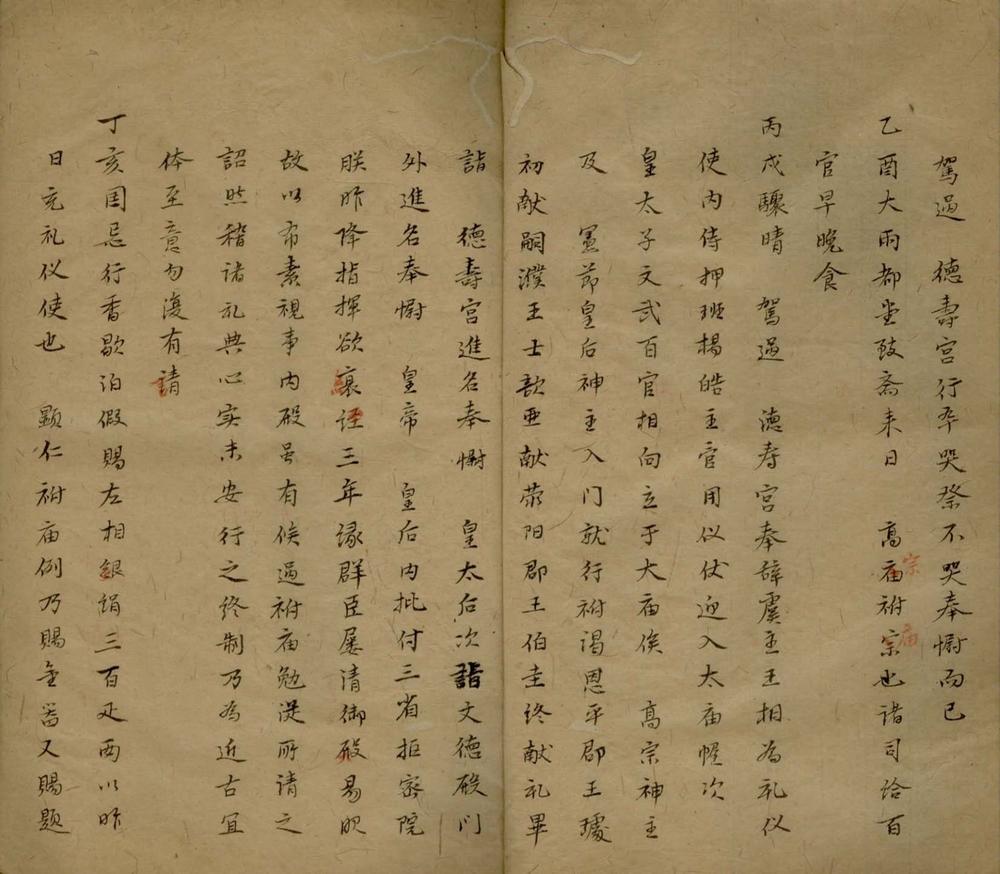 駕過　德壽宮行卒哭祭不哭奉慰而已
乙酉大雨都堂致斎来日　高庙祔宗也诸司给百
宗庙
官早晚食
丙戌驟晴　駕過　德寿宮奉辞虞主王相為礼仪
使内侍押班楊皓主官用仪仗迎入太庙幄次
皇太子文武百官相向立于大庙俟　高宗神主
及　憲節皇后神主入门就行祔谒恩平郡王璩
初献嗣濮王士歆亜献荥阳郡王伯圭终献礼畢
詣　德壽宮進名奉慰　皇太后次詣文德殿门
外進名奉慰　皇帝　皇后内批付三省枢密院
朕昨降指揮欲衰绖三年缘群臣屡请御殿易服
故以布素視事内殿虽有俟過祔庙勉従所请之
詔然稽诸礼典心实未安行之终制乃為近古宜
体至意勿復有請
丁亥国忌行香歇泊假賜左相銀绢三百疋两以昨
日充礼仪使也　顯仁祔庙例乃賜金器又賜题